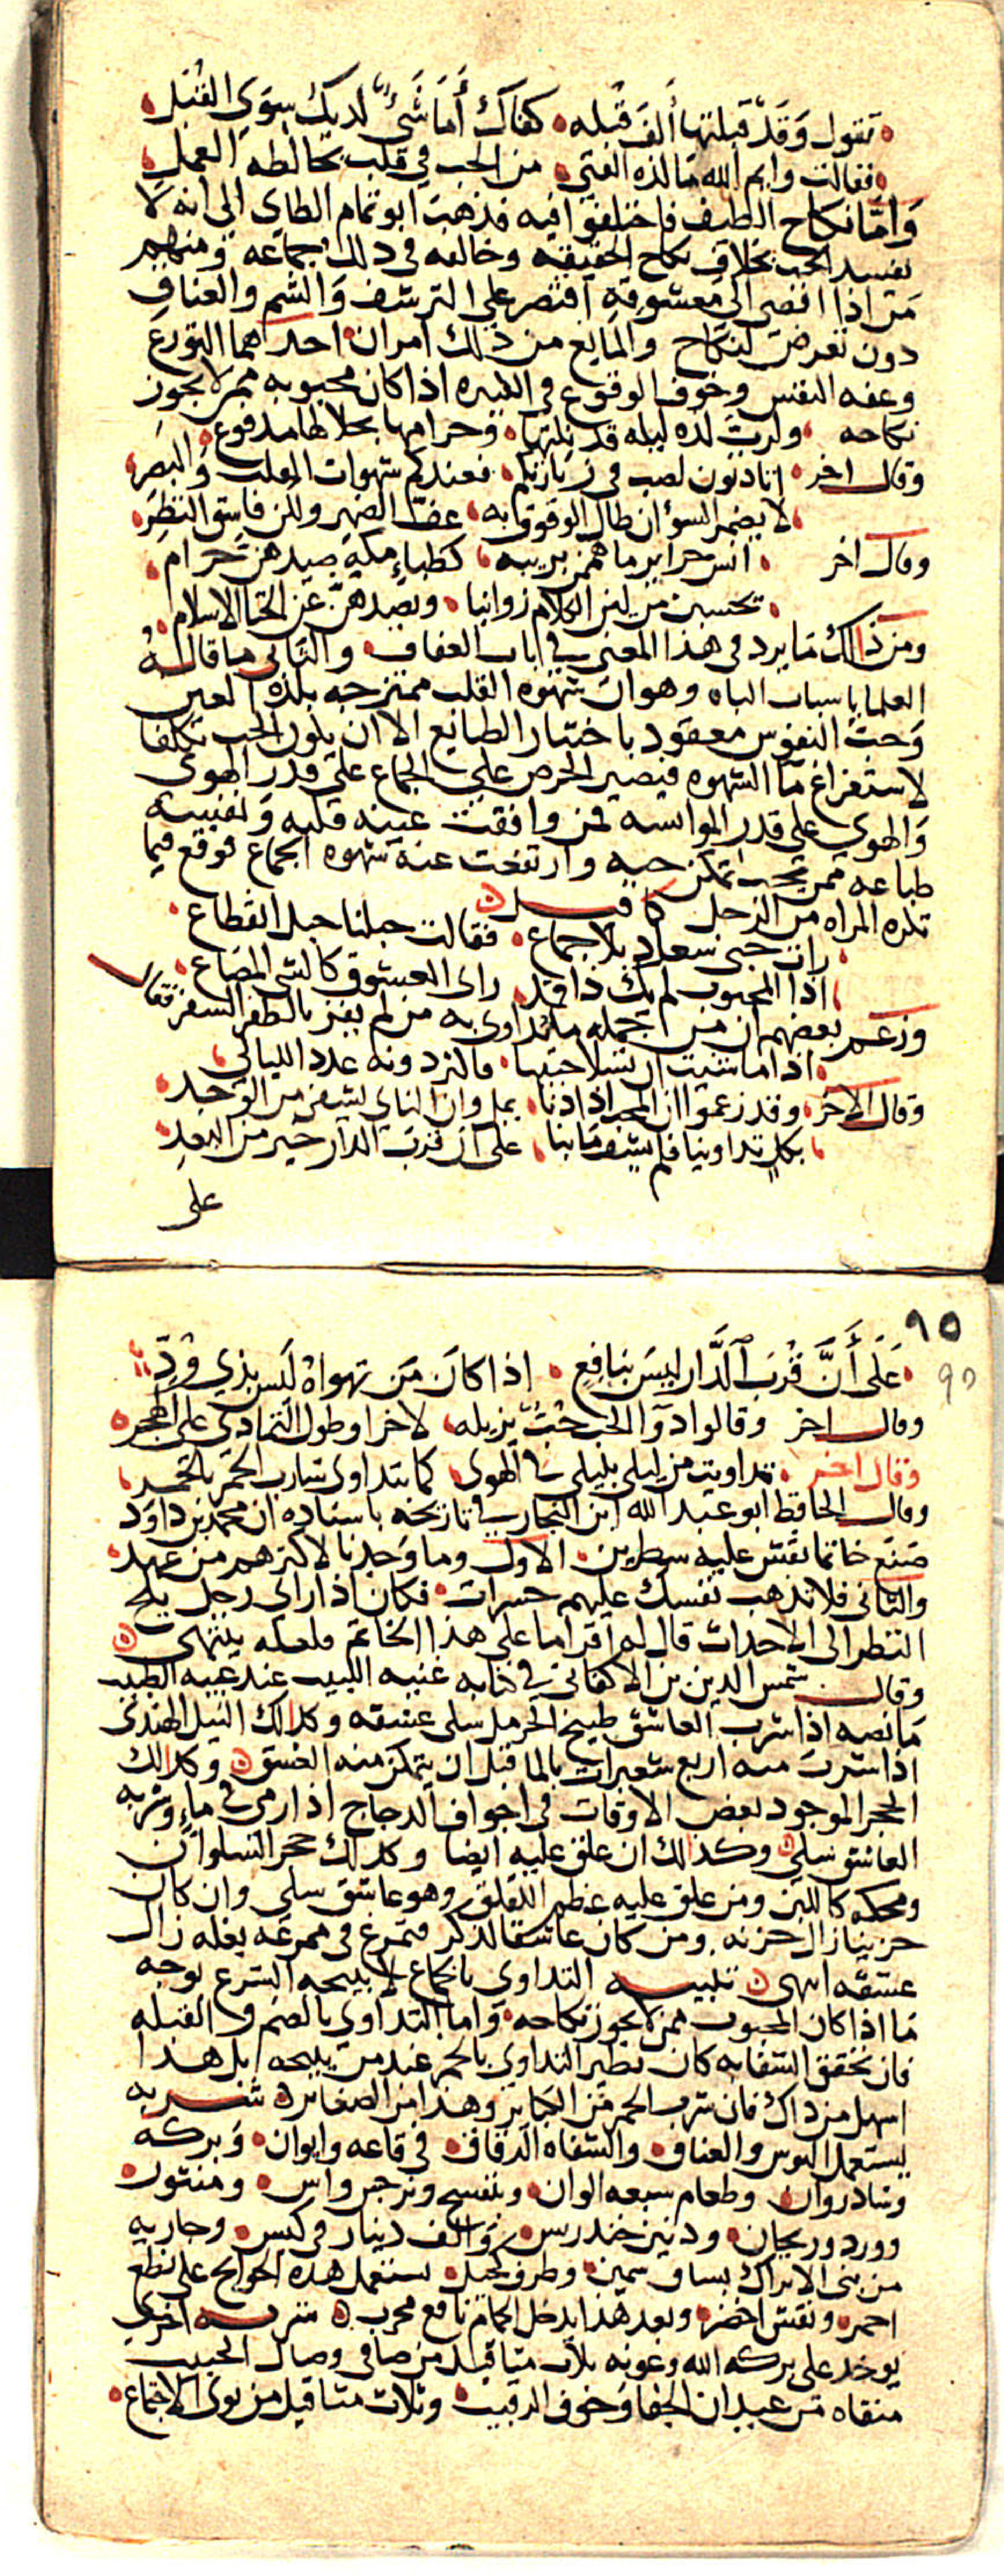 تقول وقد قبلتها ألف قبله كفاك أما شيء لديك سوى القبل
فقالت وايم الله ما لذه الفتى من الحب في قلب يخالطه العمل
واما نكاح الطيف فاختلفوا فيه فذهب ابو تمام الطاي الى انه لا
يفسد الحب بخلاف نكاح الحقيقه وخالفه في ذلك جماعه ومنهم
من اذا افضى الى معشوقه اقتصر على الترشف والشم والعناق
دون تعرض لنكاح والمانع من ذلك امران احداهما التورع
وعفه النفس وخوف الوقوع في الكبيره اذا كان محبوبه ممن لا يجوز
نكاحه ولرب لذه ليله قد نلتها وحرامها بحلالها مدفوع
وقال اخر اتادنون لصب في زيارتكم فعندكم شهوات القلب والبصر
لا يضمر السؤ ان طال الوقوف به عف الضمير ولكن فاسق النظر
وقال اخر انس حراير ما هممن بريبه كظباء مكه صيدهن حرام
تحسبن من لين الكلام زوانيا ويصدهن عن الخنا الاسلام
ومن ذلك ما يرد في هذا المعنى في باب العفاف والثاني ما قاله
العلما باسباب الباه وهو ان شهوه القلب ممتزجه بلذه العين
وحب النفوس معقود باختيار الطبايع الا ان يكون الحب تكلفا
لاستفراغ ما الشهوه فيصير الحرص على الجماع على قدر الهوى
والهوى على قدر الموانسه فمن وافقت عينه قلبه ونفسه
طباعه ممن يحب تمكن حبه وارتفعت عنه شهوه الجماع فوقع فيما
تكره المراه من الرجل كما قيل
رات حبي سعاد بلا جماع فقالت حبلنا حبل انقطاع
اذا المحبوب لم يك ذا راى العشوق كالشي المضاع
وزعم بعضهم ان من جمله ما يداوى به من لم يفز بالظفر السفر فقال
اذا ما شيت ان تسلا حبيبا فاكثر دونه عدد الليالى
وقال الاخر وقد زعموا ان المحب اذا دنا يمل وان الناى يشفى من الوجد
بكل تداوينا فلم يشف ما بنا على ان قرب الدار خير من البعد
على
٩٥
٩٥
على أن قرب الدار ليس بنافع اذا كان من تهواه ليس بذي ود
وقال اخر وقالوا دوا الحب حب يزيله لاخر او طول التمادي على الهجر
وقال اخر تداويت من ليلى بليلى في الهوى كما يتداوى شارب الخمر بالخمر
وقال الحافظ ابو عبد الله ابن النجار في تاريخه باسناده ان محمد بن داود
صنع خاتما نقش عليه سطرين الاول وما وجدنا لاكثرهم من عهد
والثاني فلا تذهب نفسك عليهم حسرات فكان اذا راى رجل يلح
النظر الى الاحداث قال له اقرا ما على هذا الخاتم فلعله ينتهى
وقال شمس الدين بن الاكفاني في كتابه غنيه اللبيب عند غيبه الطبيب
ما نصه اذا شرب العاشق طبيخ الحرمل سلى عشقه وكذلك النيل الهندى
اذا شرب منه اربع شعيرات بالما قبل ان يتمكن منه العشق وكذلك
الحجر الموجود بعض الاوقات في اجواف الدجاج اذا رمى في ماء وشربه
العاشق سلى وكذلك ان علق عليه ايضا وكذلك حجر السلوان
ومحكه كاللبن ومن علق عليه عظم اللقلق وهو عاشق سلى وان كان
حزينا زال حزنه ومن كان عاشقا لذكر فتمرغ في ممرغه بغله زال
عشقه انتهى تنبيه التداوي بالجماع لا يبيحه الشرع بوجه
ما اذا كان المحبوب ممن لا يجوز نكاحه واما التداوي بالضم والقبله
فان تحقق الشفا به كان نظير التداوي بالخمر عند من يبيحه بل هذا
اسهل من ذاك فان شرب الخمر من الكباير وهذا من الصغاير شربه
يستعمل البوس والعناق والشفاه الدقاق في قاعه وايوان وبركه
وشادروان وطعام سبعه الوان وبنفسج ونرجس واس ومنثور
وورد وريحان ودنين خندريس والف دينار في كيس وجاريه
من بني الاتراك بساق سمين وطرف كحيل تستعمل هذه الحوايج على نطع
احمر ونقش اخضر وبعد هذا يدخل الحمام نافع مجرب شربه اخرى
يوخذ على بركه الله وعونه ثلاث مثاقيل من صافي وصال الحبيب
منقاه من عيدان الجفا وخوف الرقيب وثلاث مثاقيل من نوى الاجتماع